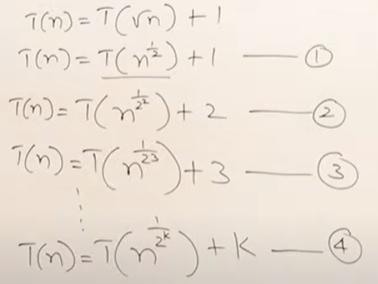 T(n) = T(√n) + 1
T(n) = T(n^{1/2}) + 1 —— ①
T(n) = T(n^{1/2^2}) + 2 —— ②
T(n) = T(n^{1/2^3}) + 3 —— ③
T(n) = T(n^{1/2^k}) + K —— ④